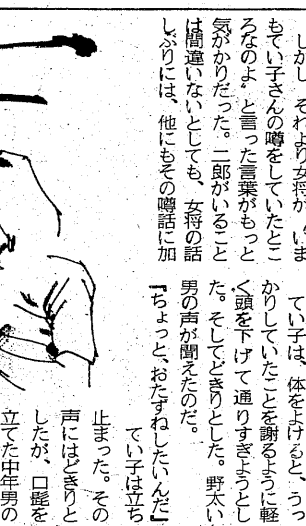 しかし、それより女将が〝いま
もてい子さんの噂をしていたとこ
ろなのよ〟と言った言葉がもっと
気がかりだった。二郎がいること
は間違いないとしても、女将の話
しぶりには、他にもその噂話に加
てい子は、体をよけると、うっ
かりしていたことを謝るように軽
く頭を下げて通りすぎようとし
た。そしてどきりとした。野太い
男の声が聞えたのだ。
『ちょっと、おたずねしたいんだ』
てい子は立ち
止まった。その
声にはどきりと
したが、口髭を
立てた中年男の